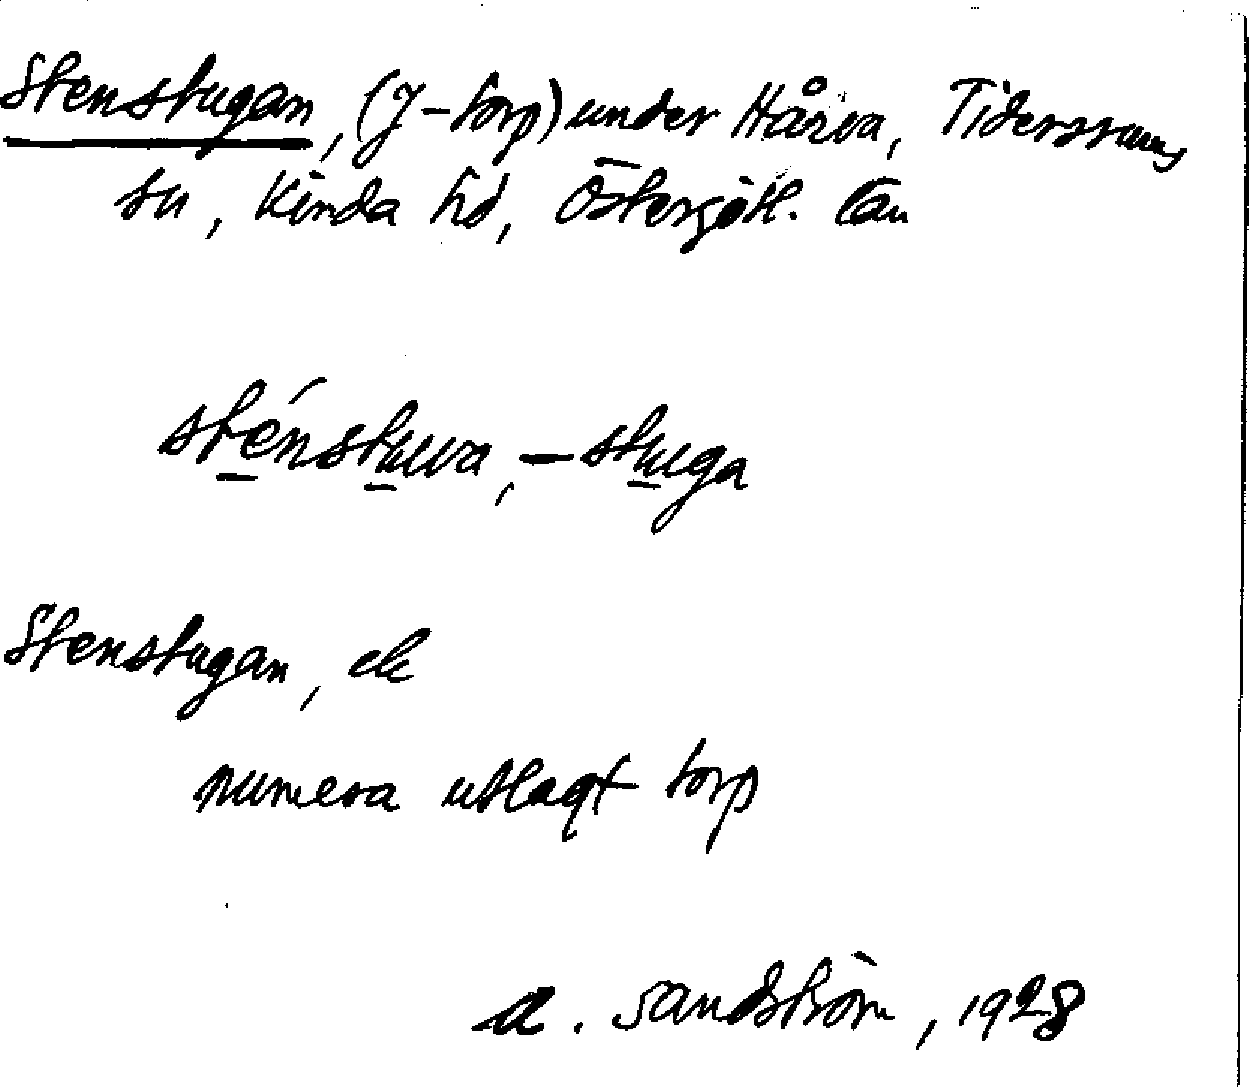 Stenstugan, (J-torp) under Hårva, Tidersrums
sn, Kinda hd, Östergötl. län
sténstuva, -stuga
Stenstugan, ek
numera utlagt torp
A. Sandström, 1928